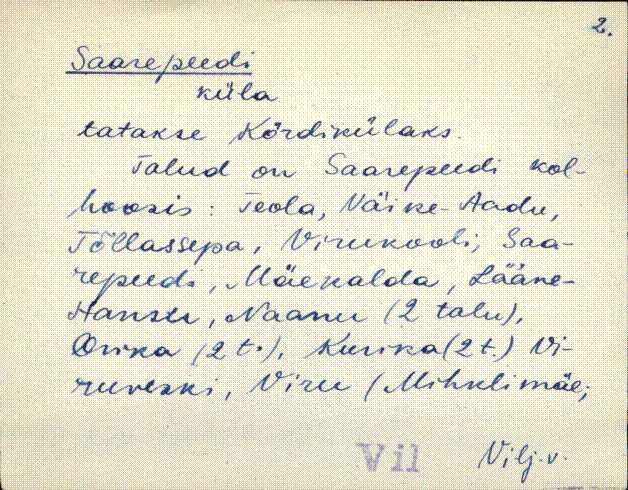 2.
Saarepeedi
küla
tatakse Kõrdikülaks.
Talud on Saarepeedi kol-
hoosis: Teola, Väike-Aadu,
Tõllassepa, Virukooli, Saa-
repeedi, Mäekalda, Lääne-
Hansu, Naanu (2 talu),
Orika (2 t.), Kurika (2 t.) Vi-
ruveski, Viru (Mihklimäe;
Vil Vilj.v.